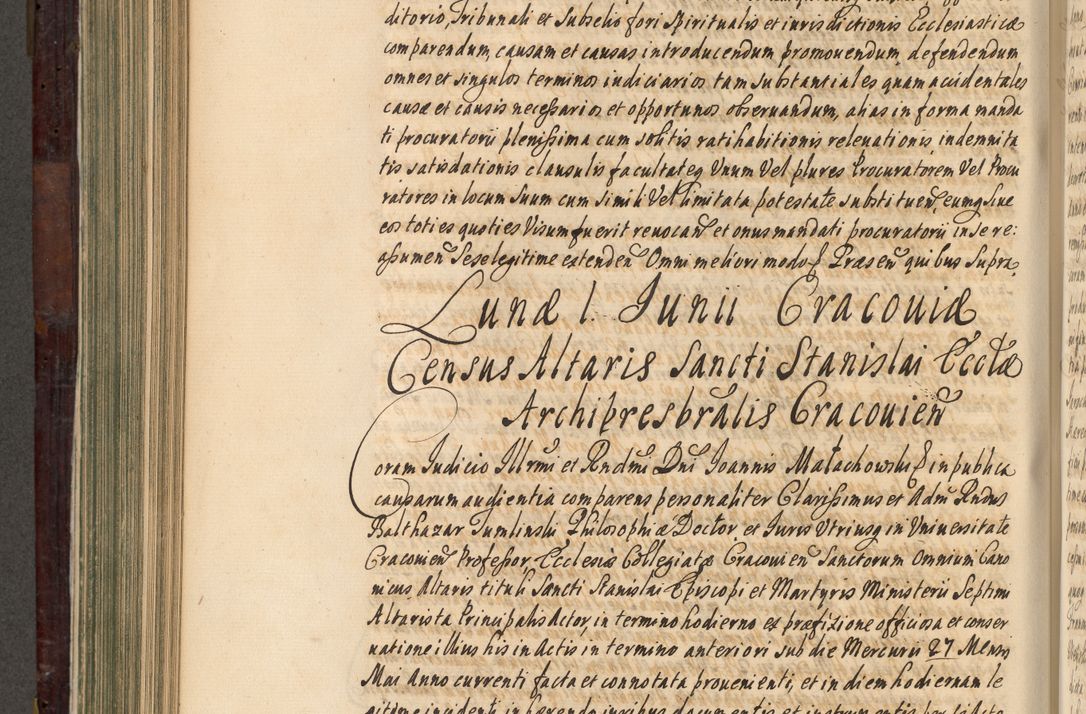 ditorio, Tribunali et Subselio fori Spiritualis et iuris dictionis Ecclesiasticæ
comparendum, causam et causas introducendum promouendum, defendendum
omnes et singulos terminos iudiciarios tam substantiales quam accidentales
causæ et causis necessarios et opportunos obseruandum, alias in forma manda
ti procuratorii plenissima cum solitis ratihabitionis releuationis, indemnita
tis satisdationis clausulis facultateq Unum Vel plures Procuratorem Vel Procu
ratores in locum suum cum simili Vel limitata potestate substituen, eumq siue
eos toties quoties Visum fuerit reuocan et onus mandati procuratorii in se re:
assumen Sese legitime extenden Omni meliori modo Præsen quibus Supra
Lunæ 1. Junii Cracouiæ
Census Altaris Sancti Stanislai Eccłæ
Archipresbralis Cracouien
Coram Judicio Illrmi et Rndmi Dni Joannis Małachowski in publica
causarum audientia comparens personaliter Clarissimus et Adm Rndus
Balthazar Tumlinski Philosophiæ Doctor, et Juris Utriusq in Uniuersitate
Cracouien Professor, Ecclesiæ Collegiatæ Cracouien Sanctorum Omnium Cano
nicus Altaris tituli Sancti Stanislai Episcopi et Martyris Ministerii Septimi
Altarista Principalis Actor, in termino hodierno ex præfixione officiosa et conser
uatione illius his in Actis in termino anteriori sub die Mercurii 27 Mensis
Mai Anno currenti facta et connotata prouenienti, et in diem hodiernam le
gitime incidenti in hærendo iuribus documentis et